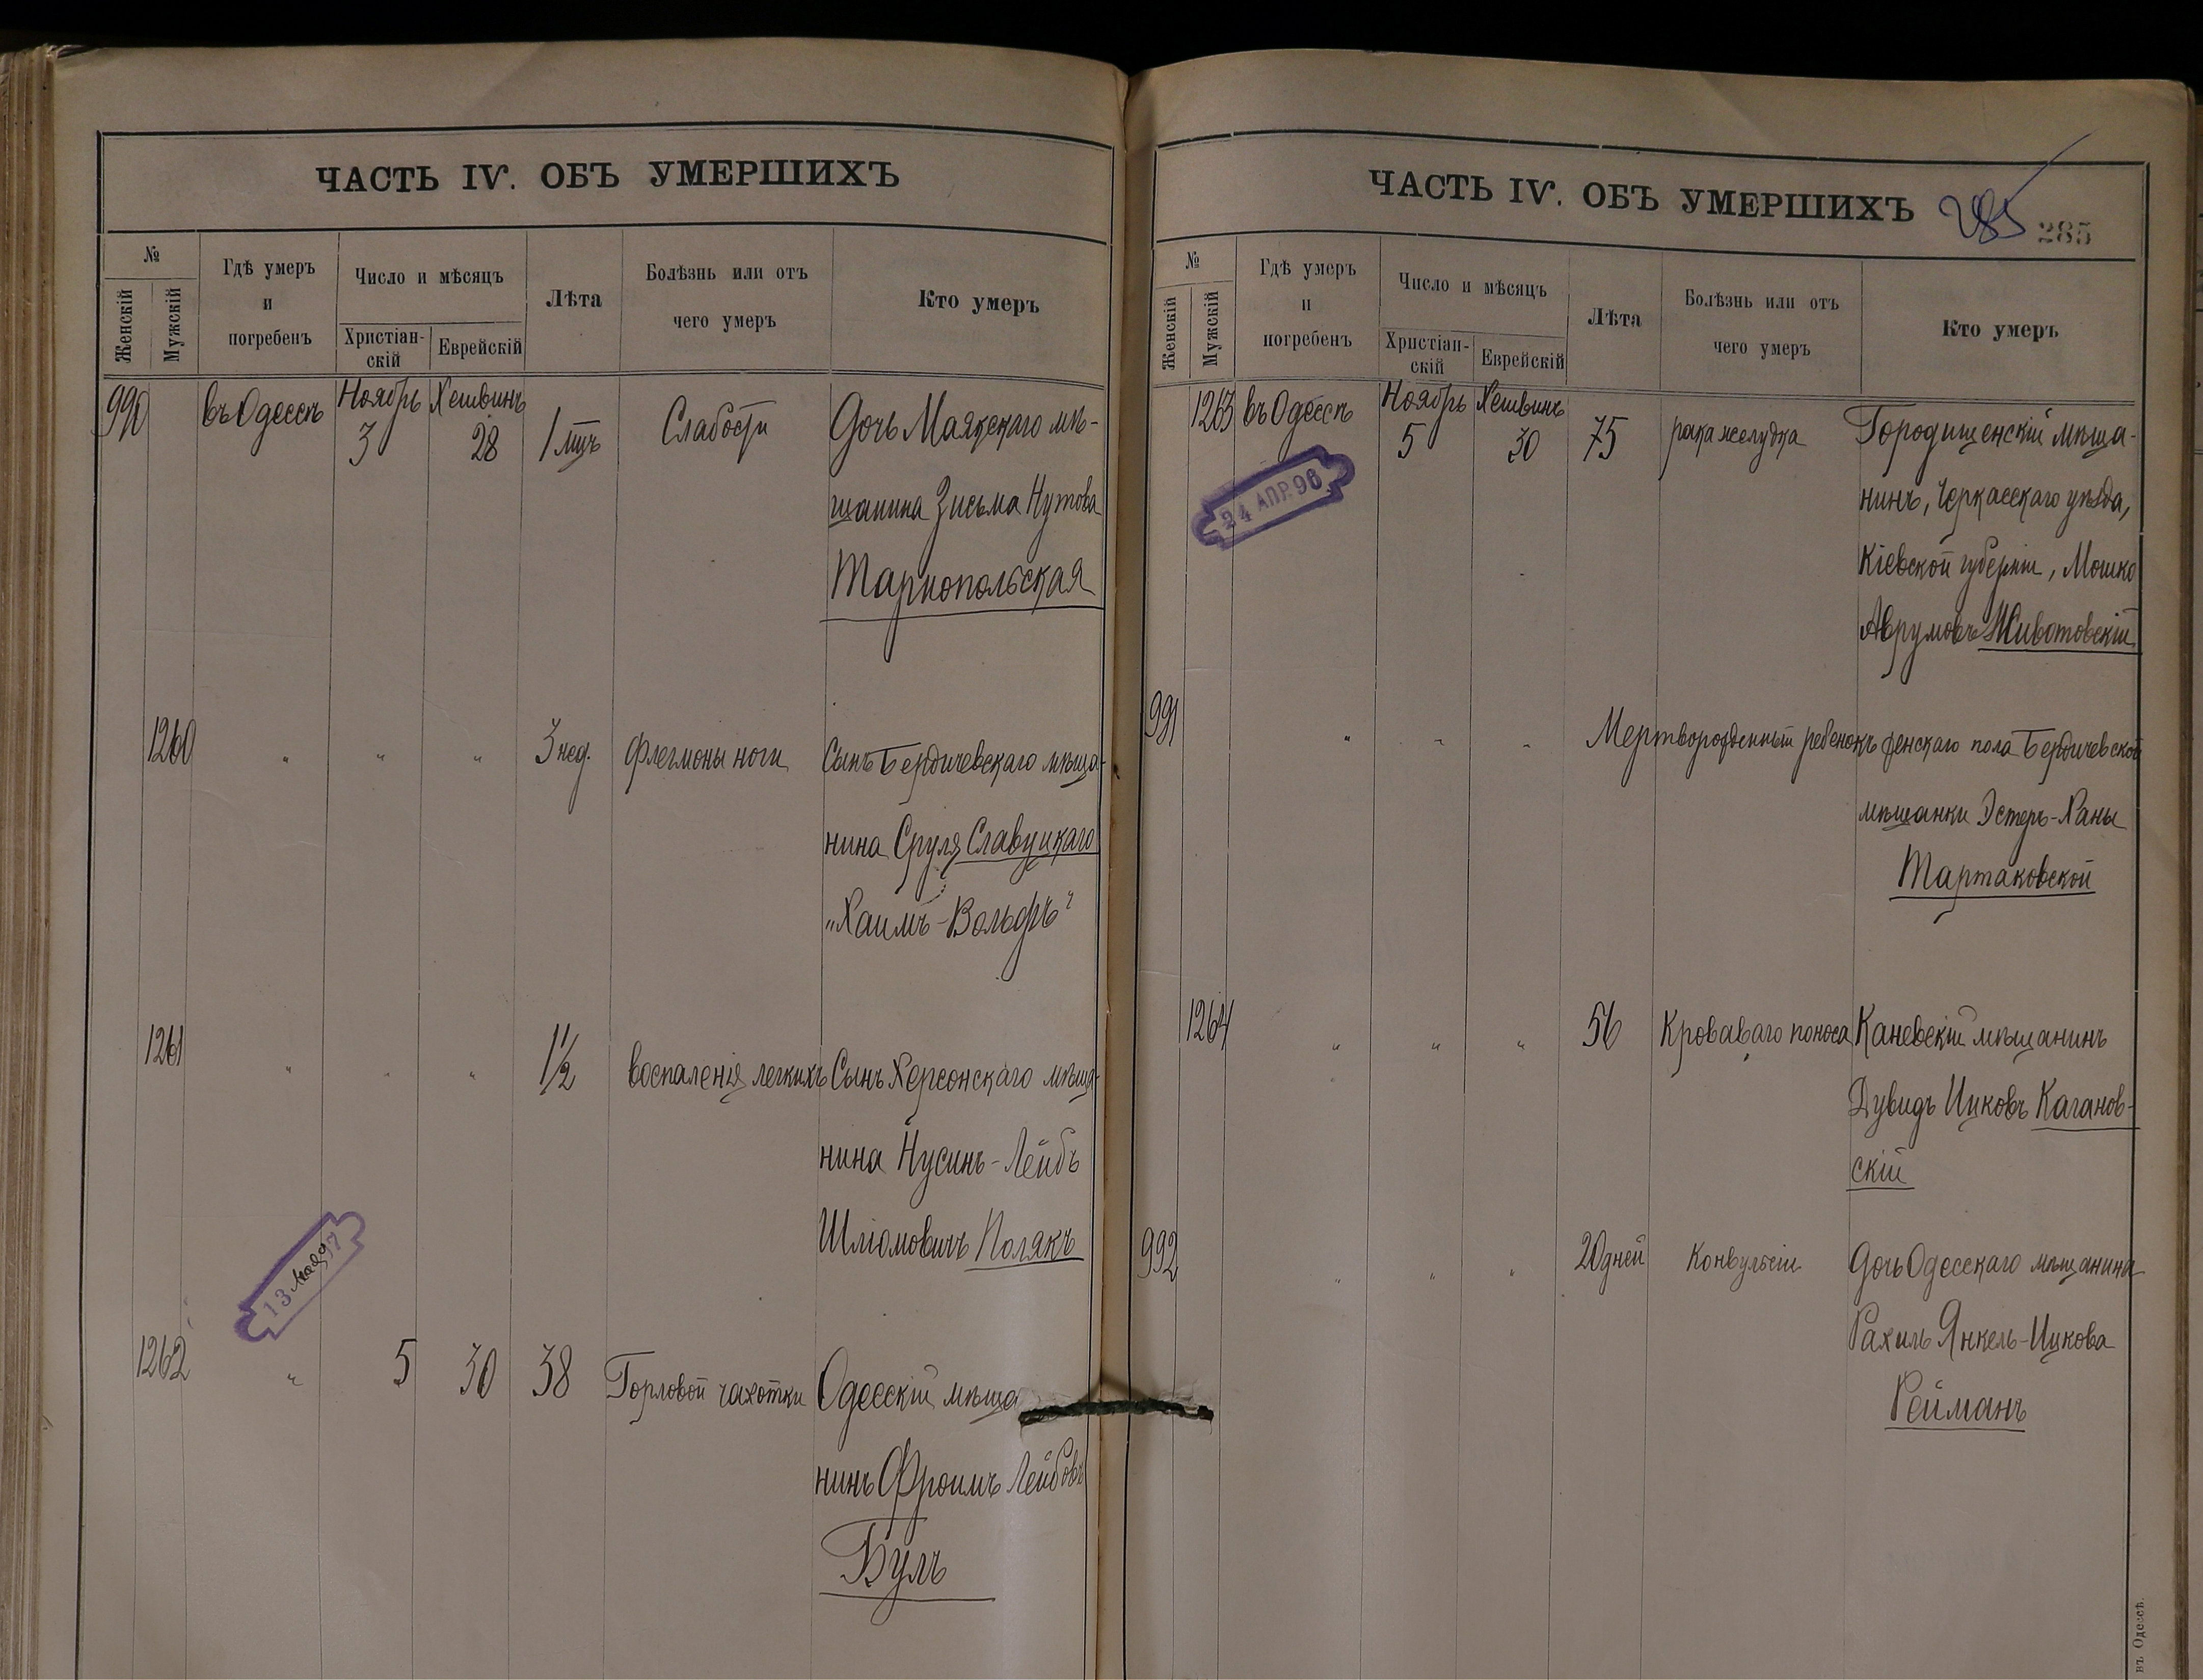 ЧАСТЬ IV. ОБЪ УМЕРШИХЪ
№
Женскій
Мужскій
Гдѣ умеръ
и
погребенъ
Число и мѣсяцъ
Христіан-
скій
Еврейскій
Лѣта
Болѣзнь или отъ
чего умеръ
Кто умеръ
990 въ Одессѣ Ноябрь Хешвинъ Слабости Дочь Маякскаго мѣ-
3 28 1 мцъ
щанина Зисьма Нутова
Тарнопольская
1260 " " " 3 нед. флегмоны ноги Сынъ Бердичевскаго мѣща-
нина Сруля Славуцкаго
„Хаимъ-Вольфъ"
1261 " " " 1½ воспаленія легкихъ Сынъ Херсонскаго мѣща-
нина Нусинъ-Лейбъ
Шліомовичъ Полякъ
13 97
1262 " 5 30 38 Горловой чахотки Одесскій мѣща
нинъ Фроимъ Лейбовъ
Булъ
ЧАСТЬ IV. ОБЪ УМЕРШИХЪ 285 285
№
Женскій
Мужскій
Гдѣ умеръ
и
погребенъ
Число и мѣсяцъ
Христіан-
скій
Еврейскій
Лѣта
Болѣзнь или отъ
чего умеръ
Кто умеръ
1263 въ Одессѣ Ноябрь Хешвинъ
5 30 75 рака желудка Городищенскій мѣща-
нинъ, Черкасскаго уѣзда,
Кіевской губерніи, Мошко
Аврумовъ Животовскій
24 АПР. 96
991 " " " Мертворожденный ребенокъ женскаго пола Бердичевской
мѣщанки Эстеръ-Ханы
Тартаковской
1264 " " " 56 Кроваваго поноса Каневскій мѣщанинъ
Дувидъ Ицковъ Каганов-
скій
992 " " " 20 дней Конвульсіи Дочь Одесскаго мѣщанина
Рахиль Янкель-Ицкова
Рейманъ
въ Одессѣ.